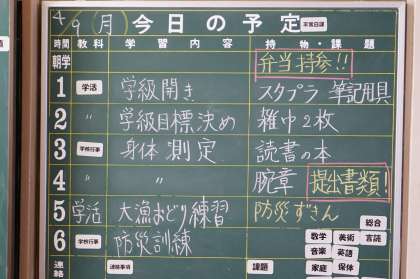 4/9(月) 今日の予定 平常日課
時間 教科 学習内容 持物・課題
朝学 弁当持参!!
1 学活 学級開き スタプラ 筆記用具
2 〃 学級目標決め 雑巾2枚
3 学校行事 身体測定 読書の本
4 〃 〃 腕章 提出書類!
5 学活 大漁おどり練習 防災ずきん
6 学校行事 防災訓練
総合
数学 美術 言読
音楽 英語
連絡 連絡事項 課題 家庭 保体